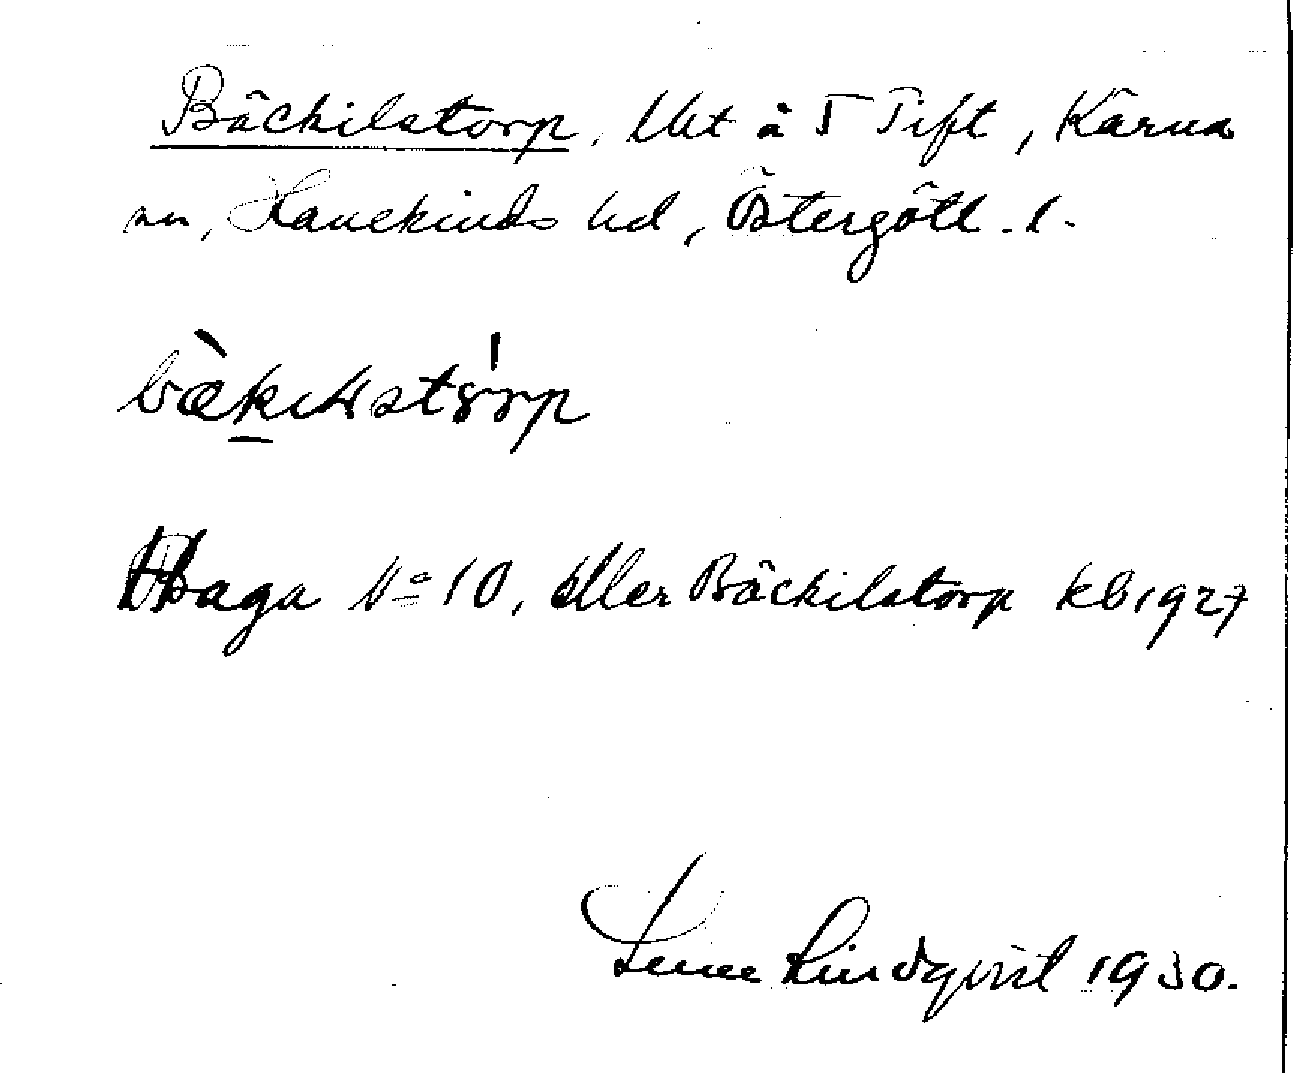 Bäckilstorp, lht å T Tift, Kärna
sn, Hanekinds hd, Östergötl. l.
bækilstòrp
Haga No 10, eller Bäckilstorp kb 1927
Sune Lindqvist 1930.